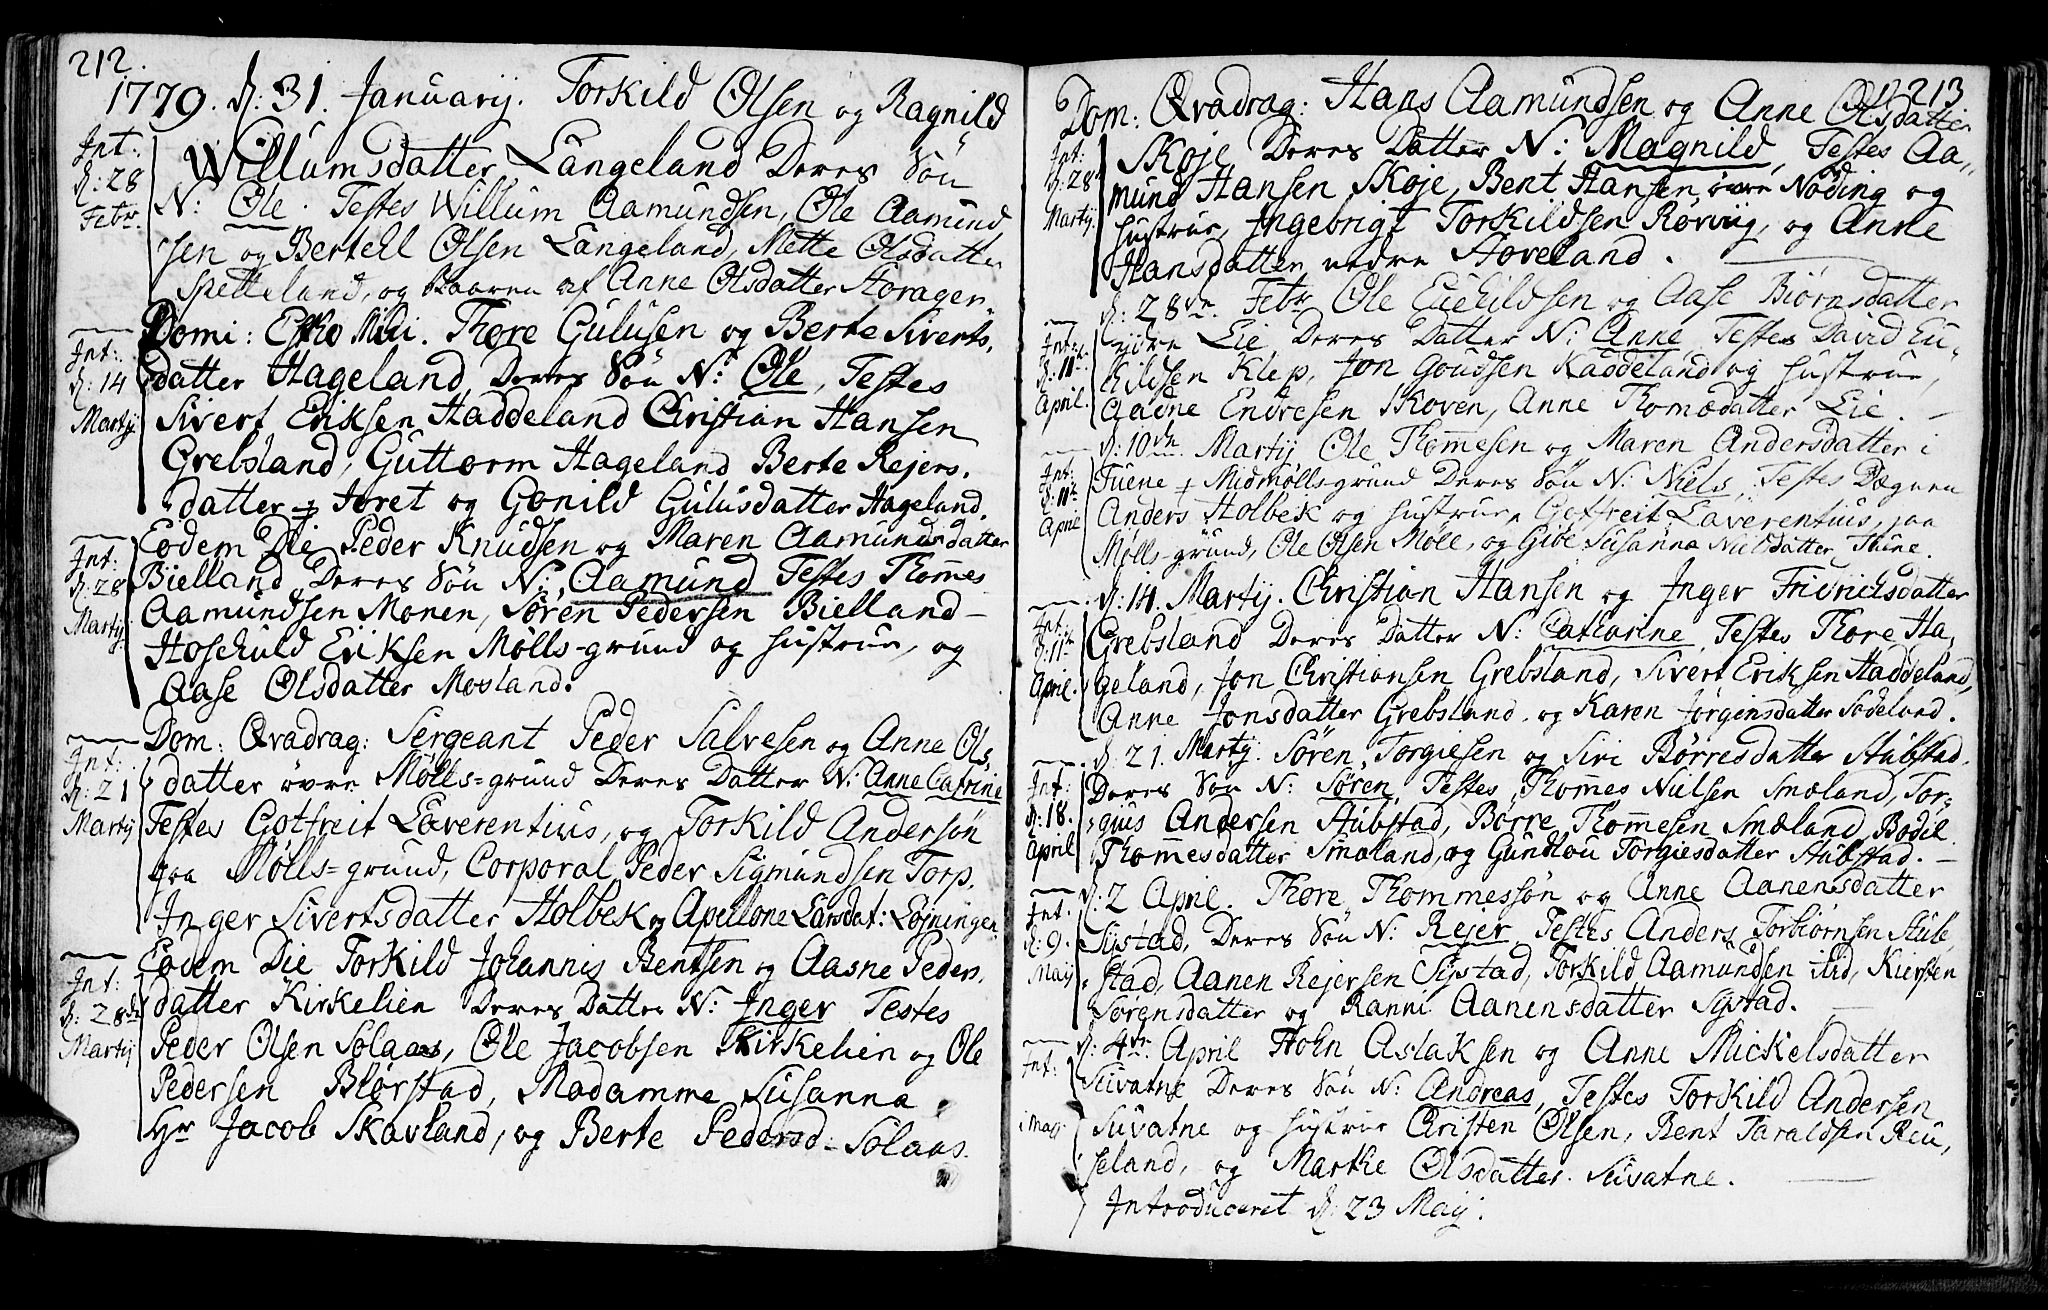 212.
1779. d: 31. Januarij. Torkild Olsen og Ragnild
Int:
d: 28
Febr.
Willumsdatter Langeland Deres Sön
N: Ole. Testes Willum Aamundsen, Ole Aamund
sen og Bertell Olsen Langeland, Mette Olsdatter
Spetteland, og baaren af Anne Olsdatter Horager
Domi: Esto Mihi. Thore Gulusen og Berte Siverts,
Int:
d: 14
Martij
datter Hageland Deres Sön N: Ole, Testes
Sivert Eriksen Haddeland Christian Hansen
Grebsland, Guttorm Hageland Berte Rejers,
datter Joret og Gonild Gulusdatter Hageland.
Eodem Die Peder Knudsen og Maren Aamundsdatter
Int:
d: 28
Martij
Bielland Deres Sön N: Aamund Testes Thom̅es
Aamundsen Monen, Sören Pedersen Bielland-
Hoschuld Eriksen Mölls-grund og hustrue, og
Aase Olsdatter Mosland.
Dom: Qvadrag: Sergeant Peder Salvesen og Anne Ols,
Int:
d: 21
Martij
datter övre Mölls=grund Deres Datter N: Anne Catrine
Testes Gotfreit Laverentius, og Torkild Andersön
paa Mölls=grund, Corporal Peder Sigmundsen Torp,
Inger Sivertsdatter Holbek og Apellone Larsdat: Löjningen
Eodem Die Torkild Johannis Bentsen og Aasne Peders,
Int:
d: 28de
Martij
datter Kirkelien Deres Datter N: Inger Testes
Peder Olsen Solaas, Ole Jacobsen Kirkelien og Ole
Pedersen Blörstad, Madamme Susanna
Hr Jacob Skavland, og Berte Pedersd- Solaas.
213.
Dom: Qvadrag: Hans Aamundsen og Anne Olsdatter
Int:
d: 28
Martij.
Skoje Deres Datter N: Magnild, Testes Aa,,
mund Hansen Skoje, Bent Hansen övre Nöding og
hustrue, Ingebrigt Torkildsen Rörvig, og Anne
Hansdatter nedre Hoveland.
d: 28de. Febr Ole Euchildsen og Aase Biörnsdatter
Int:
d: 11te
April.
ydre Lie Deres Datter N: Anne Testes David Eu,
childsen Klep, Jon Goudsen Kaddeland og hustrue,
Aadne Endresen Skoven, Anne Thomædatter Lie. -
d: 10de Martij Ole Thom̅esen og Maren Andersdatter i
Int:
d: 11te
April
Tuene Midmöllsgrund Deres Sön N: Niels, Testes Dægnen
Anders Holbek og hustrue Gotfreit Laverentius, paa
Mölls-grund, Ole Olsen Möle, og Gibe Susanna Nielsdatter Thine.
d: 14. Martij. Christian Hansen og Inger Fridrichsdatter
Int:
d: 11te
April.
Grebsland Deres Datter N: Catharine, Testes Thore Ha,
geland, Jon Christiansen Grebsland, Sivert Eriksen Haddeland,
Anne Jonsdatter Grebsland. og Karen Jörgensdatter Södeland.
d: 21. Martij. Sören Torgiesen og Siri Börresdatter Stubstad.
Int:
d: 18.
April
Deres Sön N: Sören, Testes Thom̅es Nielsen Smæland, Tor-
gius Andersen Stubstad, Börre Thom̅esen Smæland, Bodil
Thom̅esdatter Smæland, og Gundlou Torgiesdatter Stubstad. -
d: 2 April. Thore Thommessön og Anne Aanensdatter
Int.
d: 9.
Maij
Sistad, Deres Sön N: Rejer Testes Anders Torbiörnsen Stub,
stad, Aanen Rejersen Sistad, Torkild Aamundsen ibid, Kiersten
Sörensdatter og Ranni Aanensdatter Sistad.
d: 4de April John Aslaksen og Anne Mickelsdatter
Int:
i Maij.
Suvatne Deres Sön N: Andreas, Testes Torkild Andersen
Suvatne og hustrue Cristen Olsen, Bent Taraldsen Reu,
seland, og Marthe Olsdatter. Suvatne.
Introduceret d: 23 Maij.